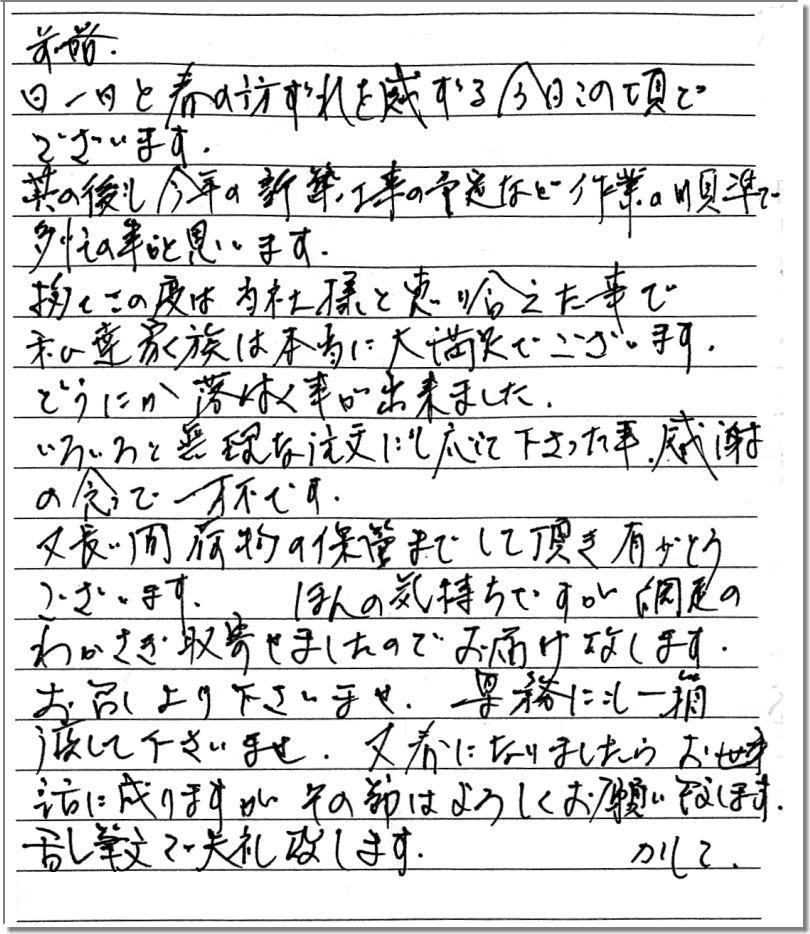 前略.
日一日と春の訪ずれを感ずる今日この頃で
ございます.
其の後も今年の新築工事の予定など作業の順準で
多忙の事と思います.
扨てこの度は当社様と恵り合えた事で
私い達家族は本当に大満足でございます.
どうにか落付く事が出来ました.
いろいろと無理な注文にも応じて下さった事.感謝
の念で一杯です.
又長い間荷物の保管までして頂き有がとう
ございます. ほんの気持ちですが 網走の
わかさぎ取寄せましたのでお届け致します.
お召し上り下さいませ. 専務にも一箱
渡して下さいませ. 又春になりましたらお世
話に成りますが その節はよろしくお願い致します.
乱筆文で失礼致します. かしこ.